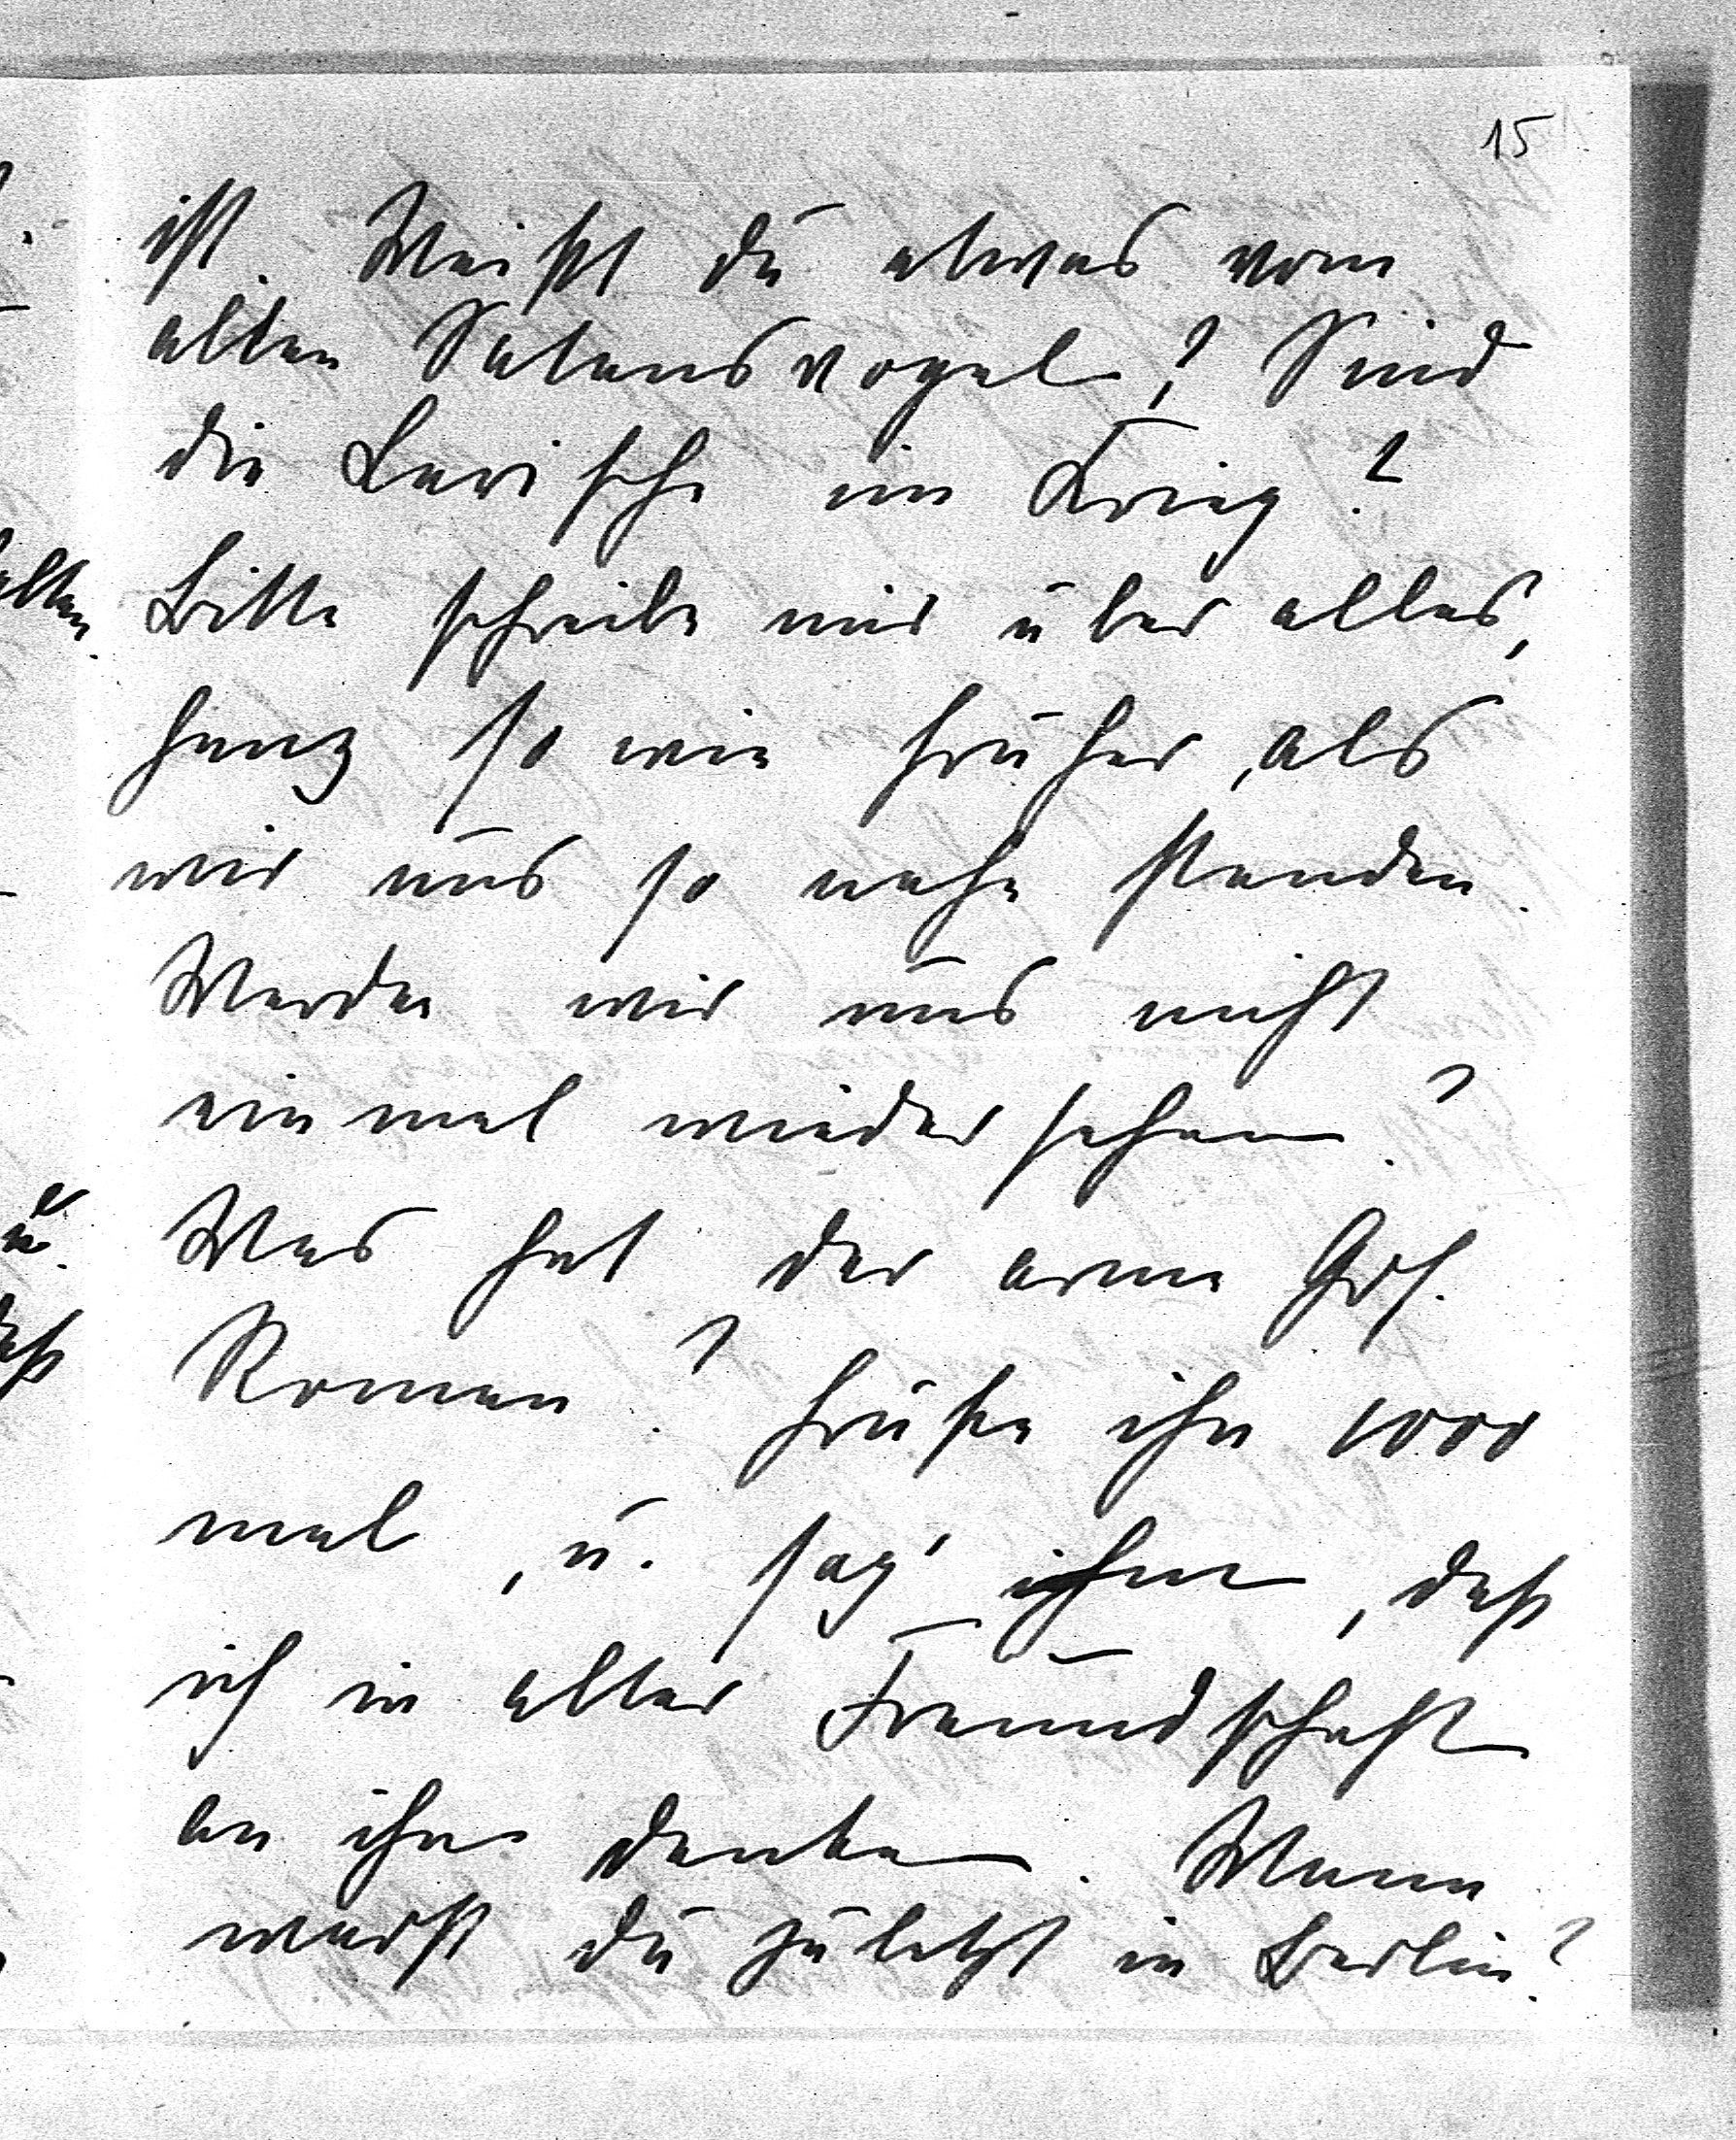 15
ist. Weißt du etwas vom
alten Satansvogel? Sind
die Larisch im Krieg?
Bitte schreibe mir über alles,
ganz so wie früher, als
wir uns so nahe standen.
Werden wir uns nicht
einmal wiedersehen?
Was hat der arme
Roman? Grüße ihn 1000
mal, u. sag' ihm, daß
ich in alter Freundschaft
an ihn denke. Wann
warst du zuletzt in Berlin?